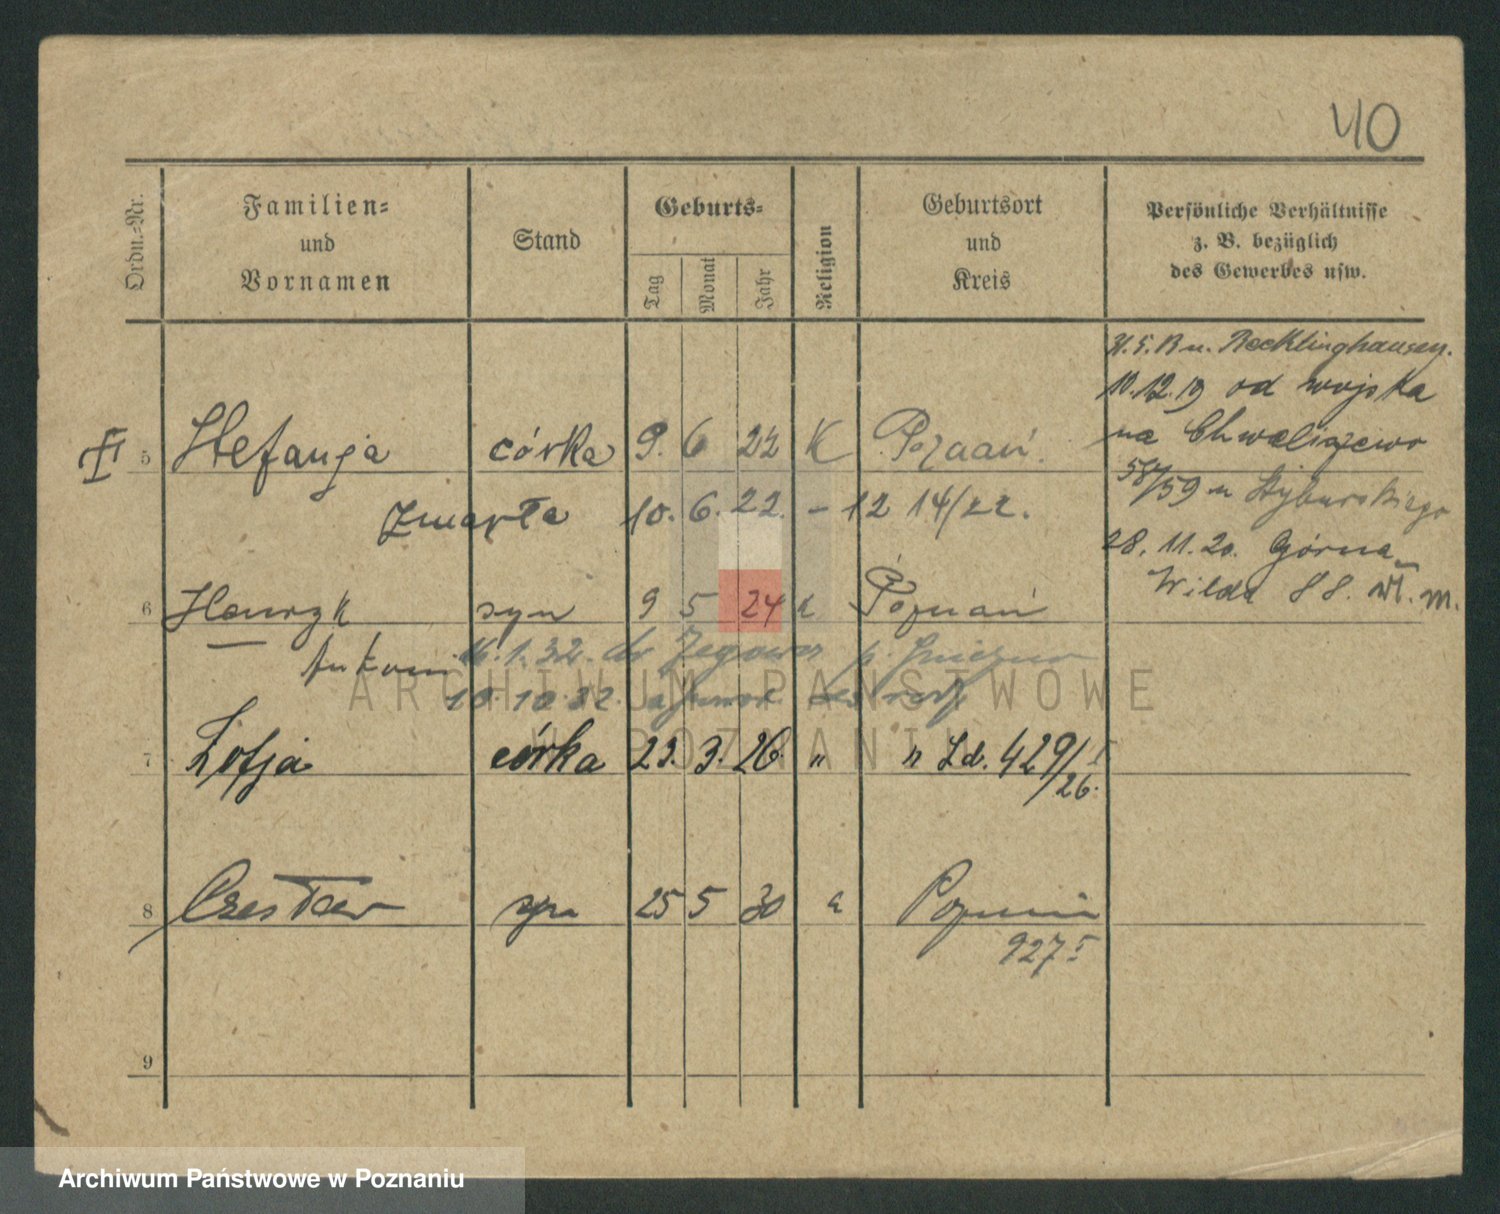 40
Ordn.-Nr.
Familien-
und
Vornamen
Stand
Geburts-
Tag
Monat
Jahr
Religion
Geburtsort
und
Kreis
Persönliche Verhältnisse
z. B. bezüglich
des Gewerbes usw.
31.5.18 n. Recklinghausen.
10.12.19 od wojska
na Chwaliszewo
58/59 u
28.11.20. Górna
Wilda
5 Stefanja córka 9. 6 22 K Poznań.
Zmarła 10. 6. 22. - 12 14/22.
6 Henryk syn 9 5 24 k Poznań
Antoni 16.1.32. do p.
10.10.32.
7 Zofja córka 23. 3. 26. " " Ld. 429/I
26.
8 Czesław syn 25 5 30 k Poznań
927 I
9
ARCHIWUM PAŃSTWOWE
W POZNANIU
Archiwum Państwowe w Poznaniu